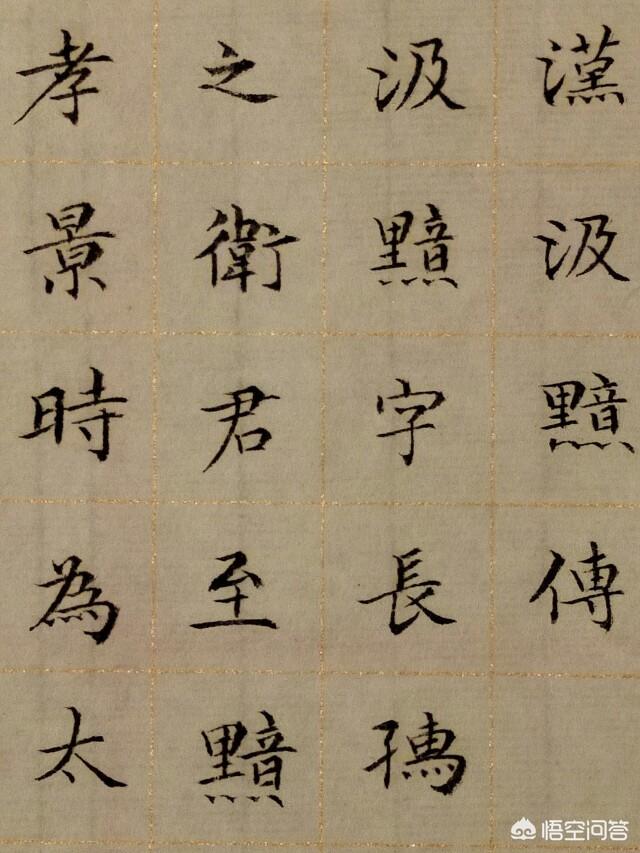 漢汲黯傳
汲黯字長孺
之衛君至黯
孝景時為太
悟空问答